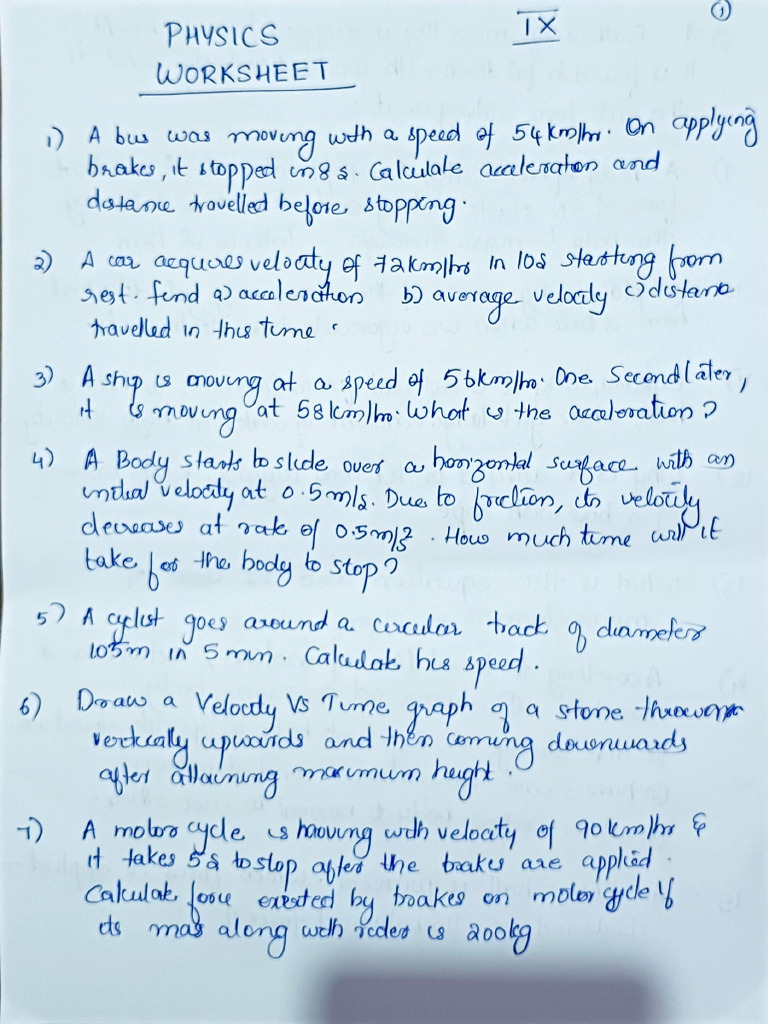 IX
1
PHYSICS
WORKSHEET
1) A bus was moving with a speed of 54km/hr. On applying
brakes, it stopped in 8s. Calculate acceleration and
distance travelled before stopping.
2) A car acquires velocity of 72km/hr in 10s starting from
rest. find a) acceleration b) average velocity c) distance
travelled in this time.
3) A ship is moving at a speed of 56km/hr. One Second later,
it is moving at 58km/hr. What is the acceleration?
4) A Body starts to slide over a horizontal surface with an
initial velocity at 0.5m/s. Due to friction, its velocity
decreases at rate of 0.5m/s². How much time will it
take for the body to stop?
5) A cyclist goes around a circular track of diameter
105m in 5 min. Calculate his speed.
6) Draw a Velocity VS Time graph of a stone thrown
vertically upwards and then coming downwards
after attaining maximum height.
7) A motor cycle is moving with velocity of 90km/hr &
it takes 5s to stop after the brakes are applied.
Calculate force exerted by brakes on motor cycle if
its mas along with rider is 200kg